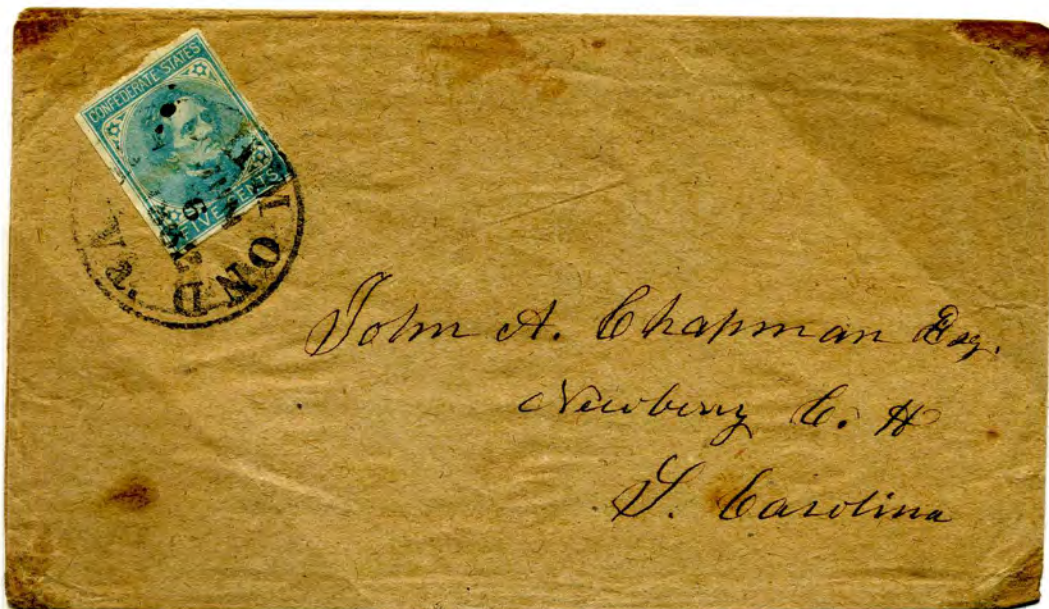 CONFEDERATE STATES
FIVE CENTS
6
MOND VA.
John A. Chapman Esq.
Newberry C. H
S. Carolina